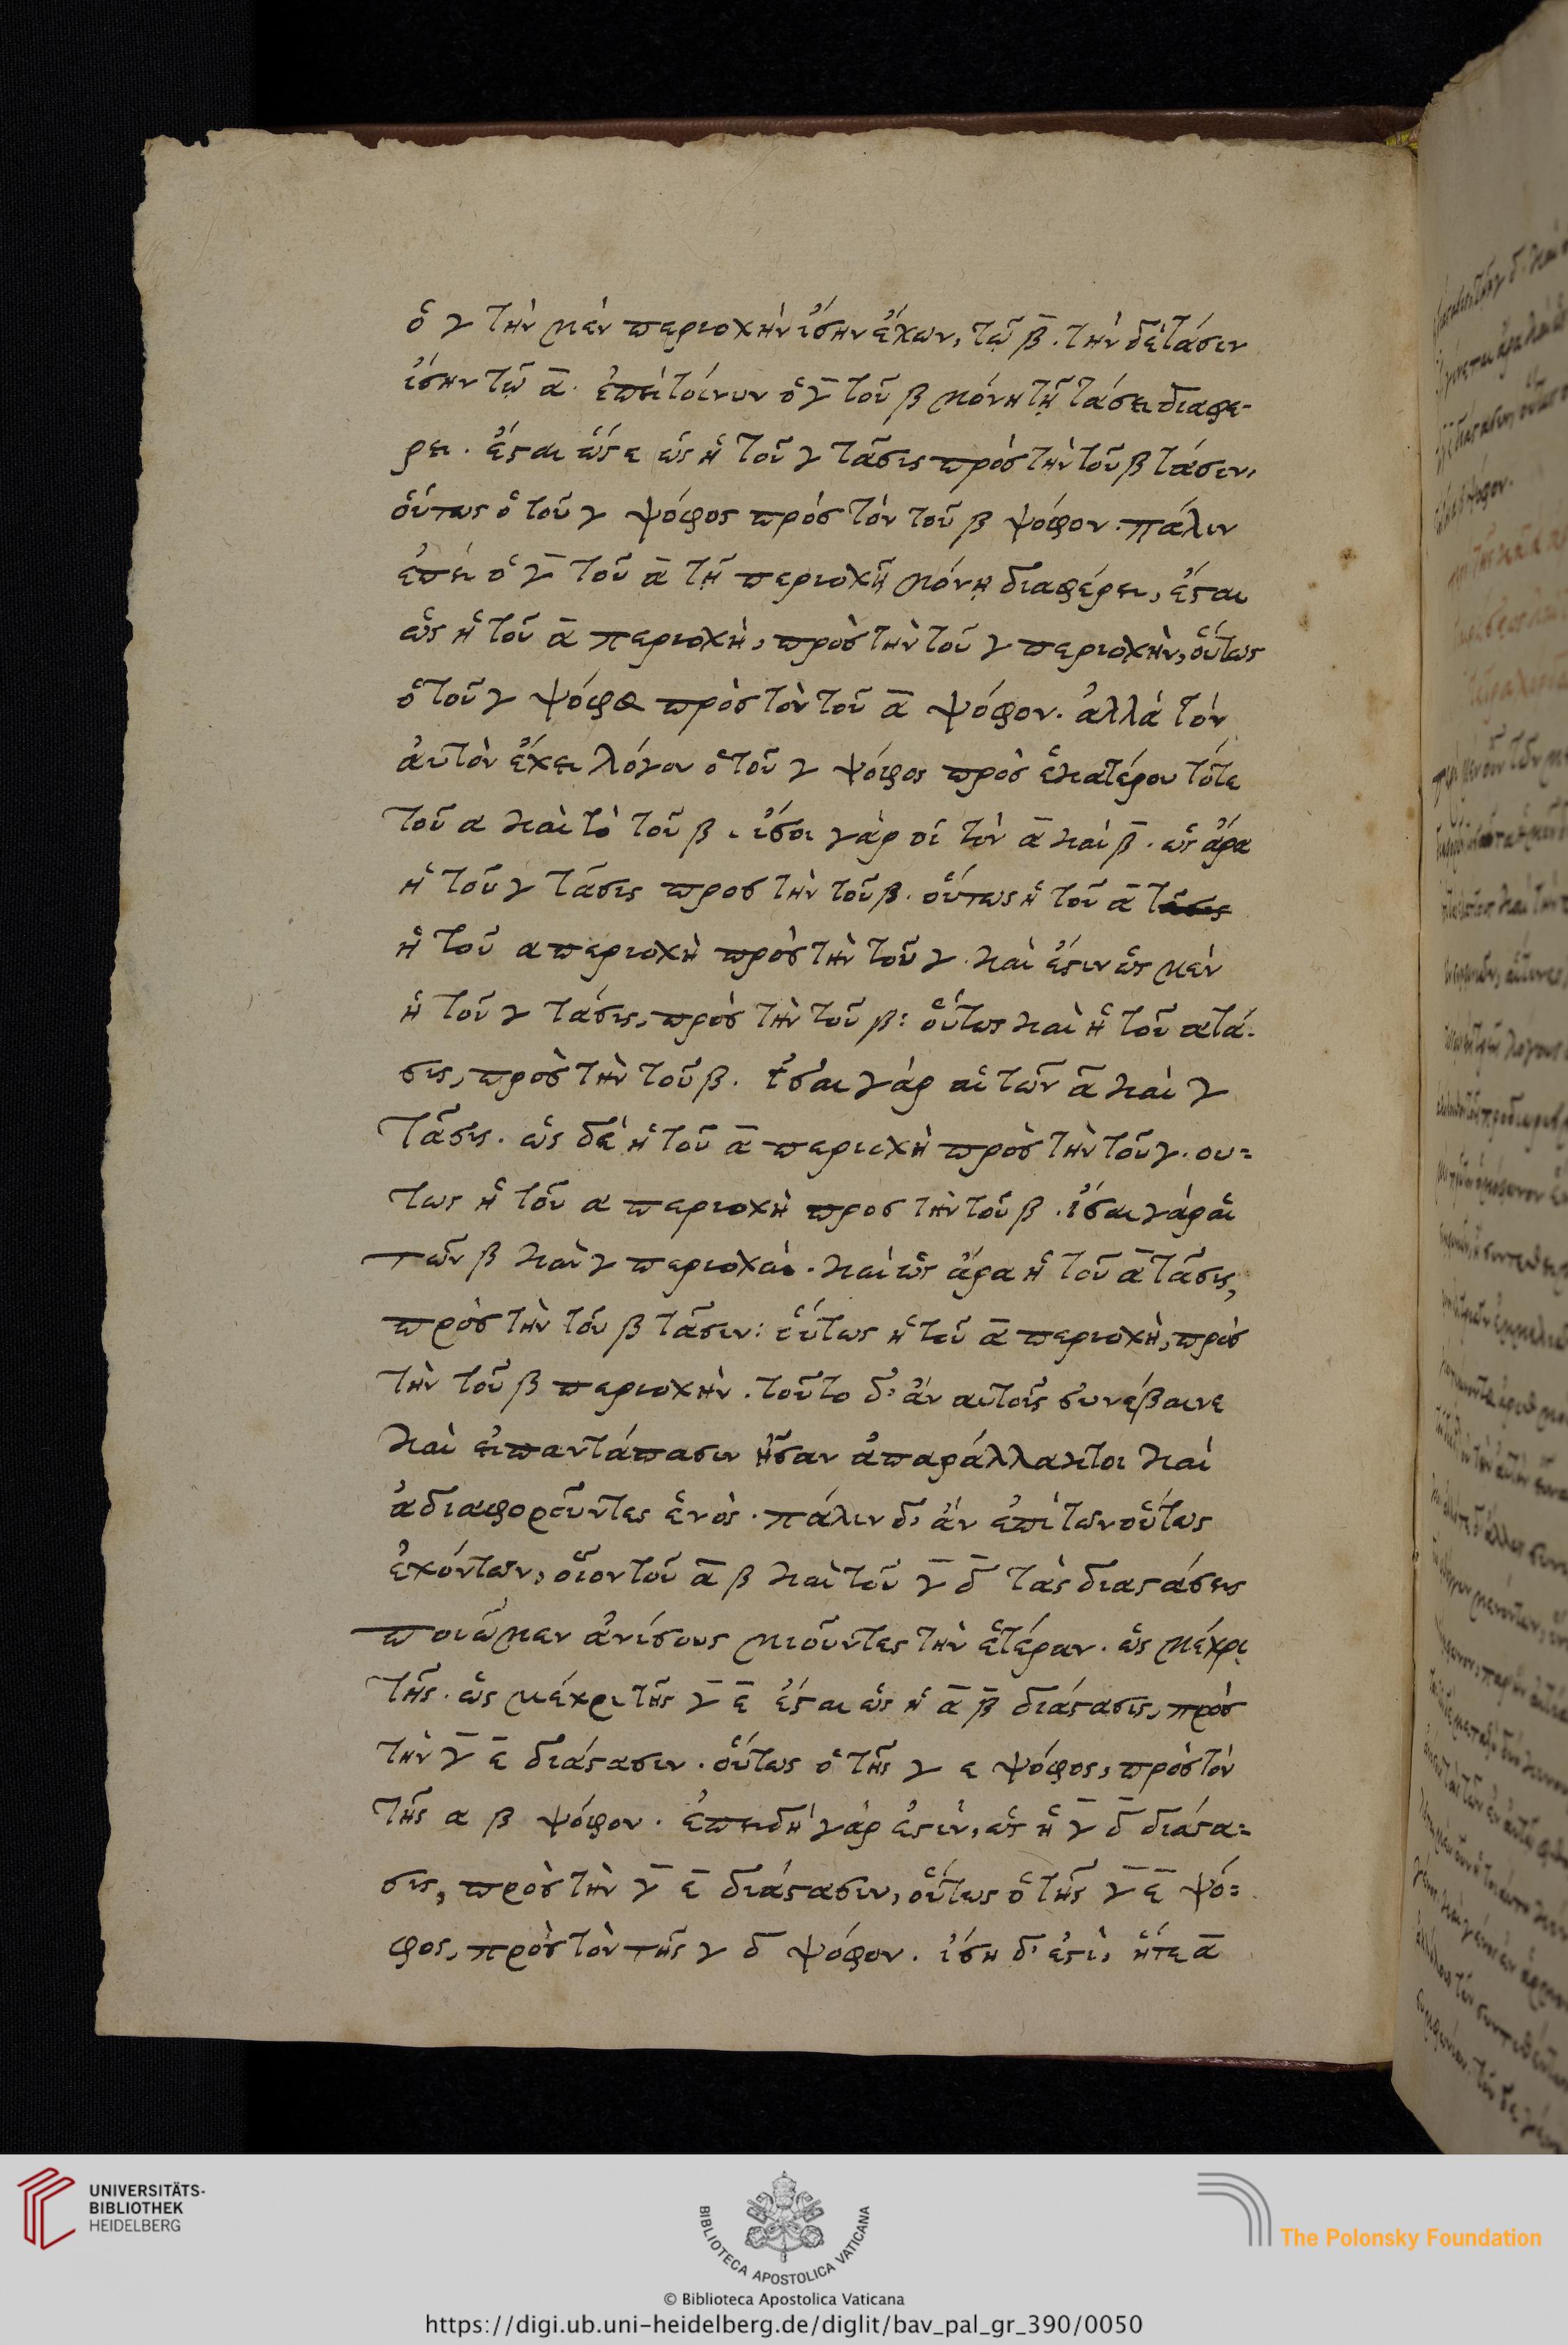 ὁ γ τὴν μὲν περιοχὴν ἴσην ἔχων, τῷ β̅. τὴν δὲ τάσιν
ἴσην τῷ α̅. ἐπεὶ τοίνυν ὁ γ̅ τοῦ β μόνη τῇ τάσει διαφέ-
ρει. ἔσται ὥστε ὡς ἡ τοῦ γ τᾶσις πρὸς τὴν τοῦ β τάσιν,
οὕτως ὁ τοῦ γ ψόφος πρὸς τὸν τοῦ β ψόφον. πάλιν
ἐπεὶ ὁ γ̅ τοῦ α̅ τῇ περιοχῇ μόνῃ διαφέρει, ἔσται
ὡς ἡ τοῦ α̅ περιοχὴ, πρὸς τὴν τοῦ γ περιοχὴν, οὕτως
ὁ τοῦ γ ψόφος πρὸς τὸν τοῦ α̅ ψόφον. ἀλλὰ τὸν
ἀυτὸν ἔχει λόγον ὁ τοῦ γ ψόφος πρὸς ἑκατέρον τότε
τοῦ α καὶ τὸ τοῦ β. ἴσοι γὰρ οἱ τὸν α̅ καὶ β̅. ὡς ἄρα
ἡ τοῦ γ τάσις προς τὴν τοῦ β. οὕτως ἡ τοῦ α̅ τᾶσις
ἡ τοῦ α περιοχὴ πρὸς τὴν τοῦ γ. καὶ ἔστιν ὡς μὲν
ἡ τοῦ γ τάσις, πρὸς τὴν τοῦ β: οὕτως καὶ ἡ τοῦ α τά-
σις, πρὸς τὴν τοῦ β. ἔσαι γὰρ αἱ τῶν α̅ καὶ γ
τᾶσις. ὡς δὲ ἡ τοῦ α̅ περιοχὴ πρὸς τὴν τοῦ γ. ου=
τως ἡ τοῦ α περιοχὴ προς τὴν τοῦ β. ἴσαι γὰρ αἱ
τῶν β καὶ γ περιοχαὶ. καὶ ὡς ἄρα ἡ τοῦ α̅ τάσις,
πρὸς τὴν τοῦ β τᾶσιν: οὕτως ἡ τοῦ α̅ περιοχὴ, πρὸς
τὴν τοῦ β περιοχὴν. τοῦτο δ' ἂν αυτοῖς συνέβαινε
καὶ ει παντάπασιν ἦσαν ἀπαράλλακτοι καὶ
ἀδιαφοροῦντες ἑνὸς. πάλιν δ' ἂν ἐπὶ των οὕτως
ἐχόντων, οἷον τοῦ α̅ β καὶ τοῦ γ̅ δ̅ τὰς διαστάσεις
ποιῶμεν ἀνίσους μιοῦντες τὴν ἑτέραν. ὡς μέχρι
τῆς. ὡς μέχρι τῆς γ̅ ε̅ ἔσται ὡς ἡ α̅ β̅ διάστασις, πρὸς
τὴν γ̅ ε̅ διάστασιν. οὕτως ὁ τῆς γ ε ψόφος, πρὸς τὸν
τῆς α β ψόφον. ἐπειδὴ γάρ ἐστιν, ὡς ἡ γ̅ δ̅ διάστα=
σις, πρὸς τὴν γ̅ ε̅ διάστασιν, οὕτως ὁ τῆς γ̅ ε̅ ψό=
φος, πρὸς τὸν τῆς γ δ ψόφον. ἴση δ' ἐστὶ, ἥτε α̅
UNIVERSITÄTS-
BIBLIOTHEK
HEIDELBERG
BIBLIOTECA APOSTOLICA VATICANA
The Polonsky Foundation
© Biblioteca Apostolica Vaticana
https://digi.ub.uni-heidelberg.de/diglit/bav_pal_gr_390/0050